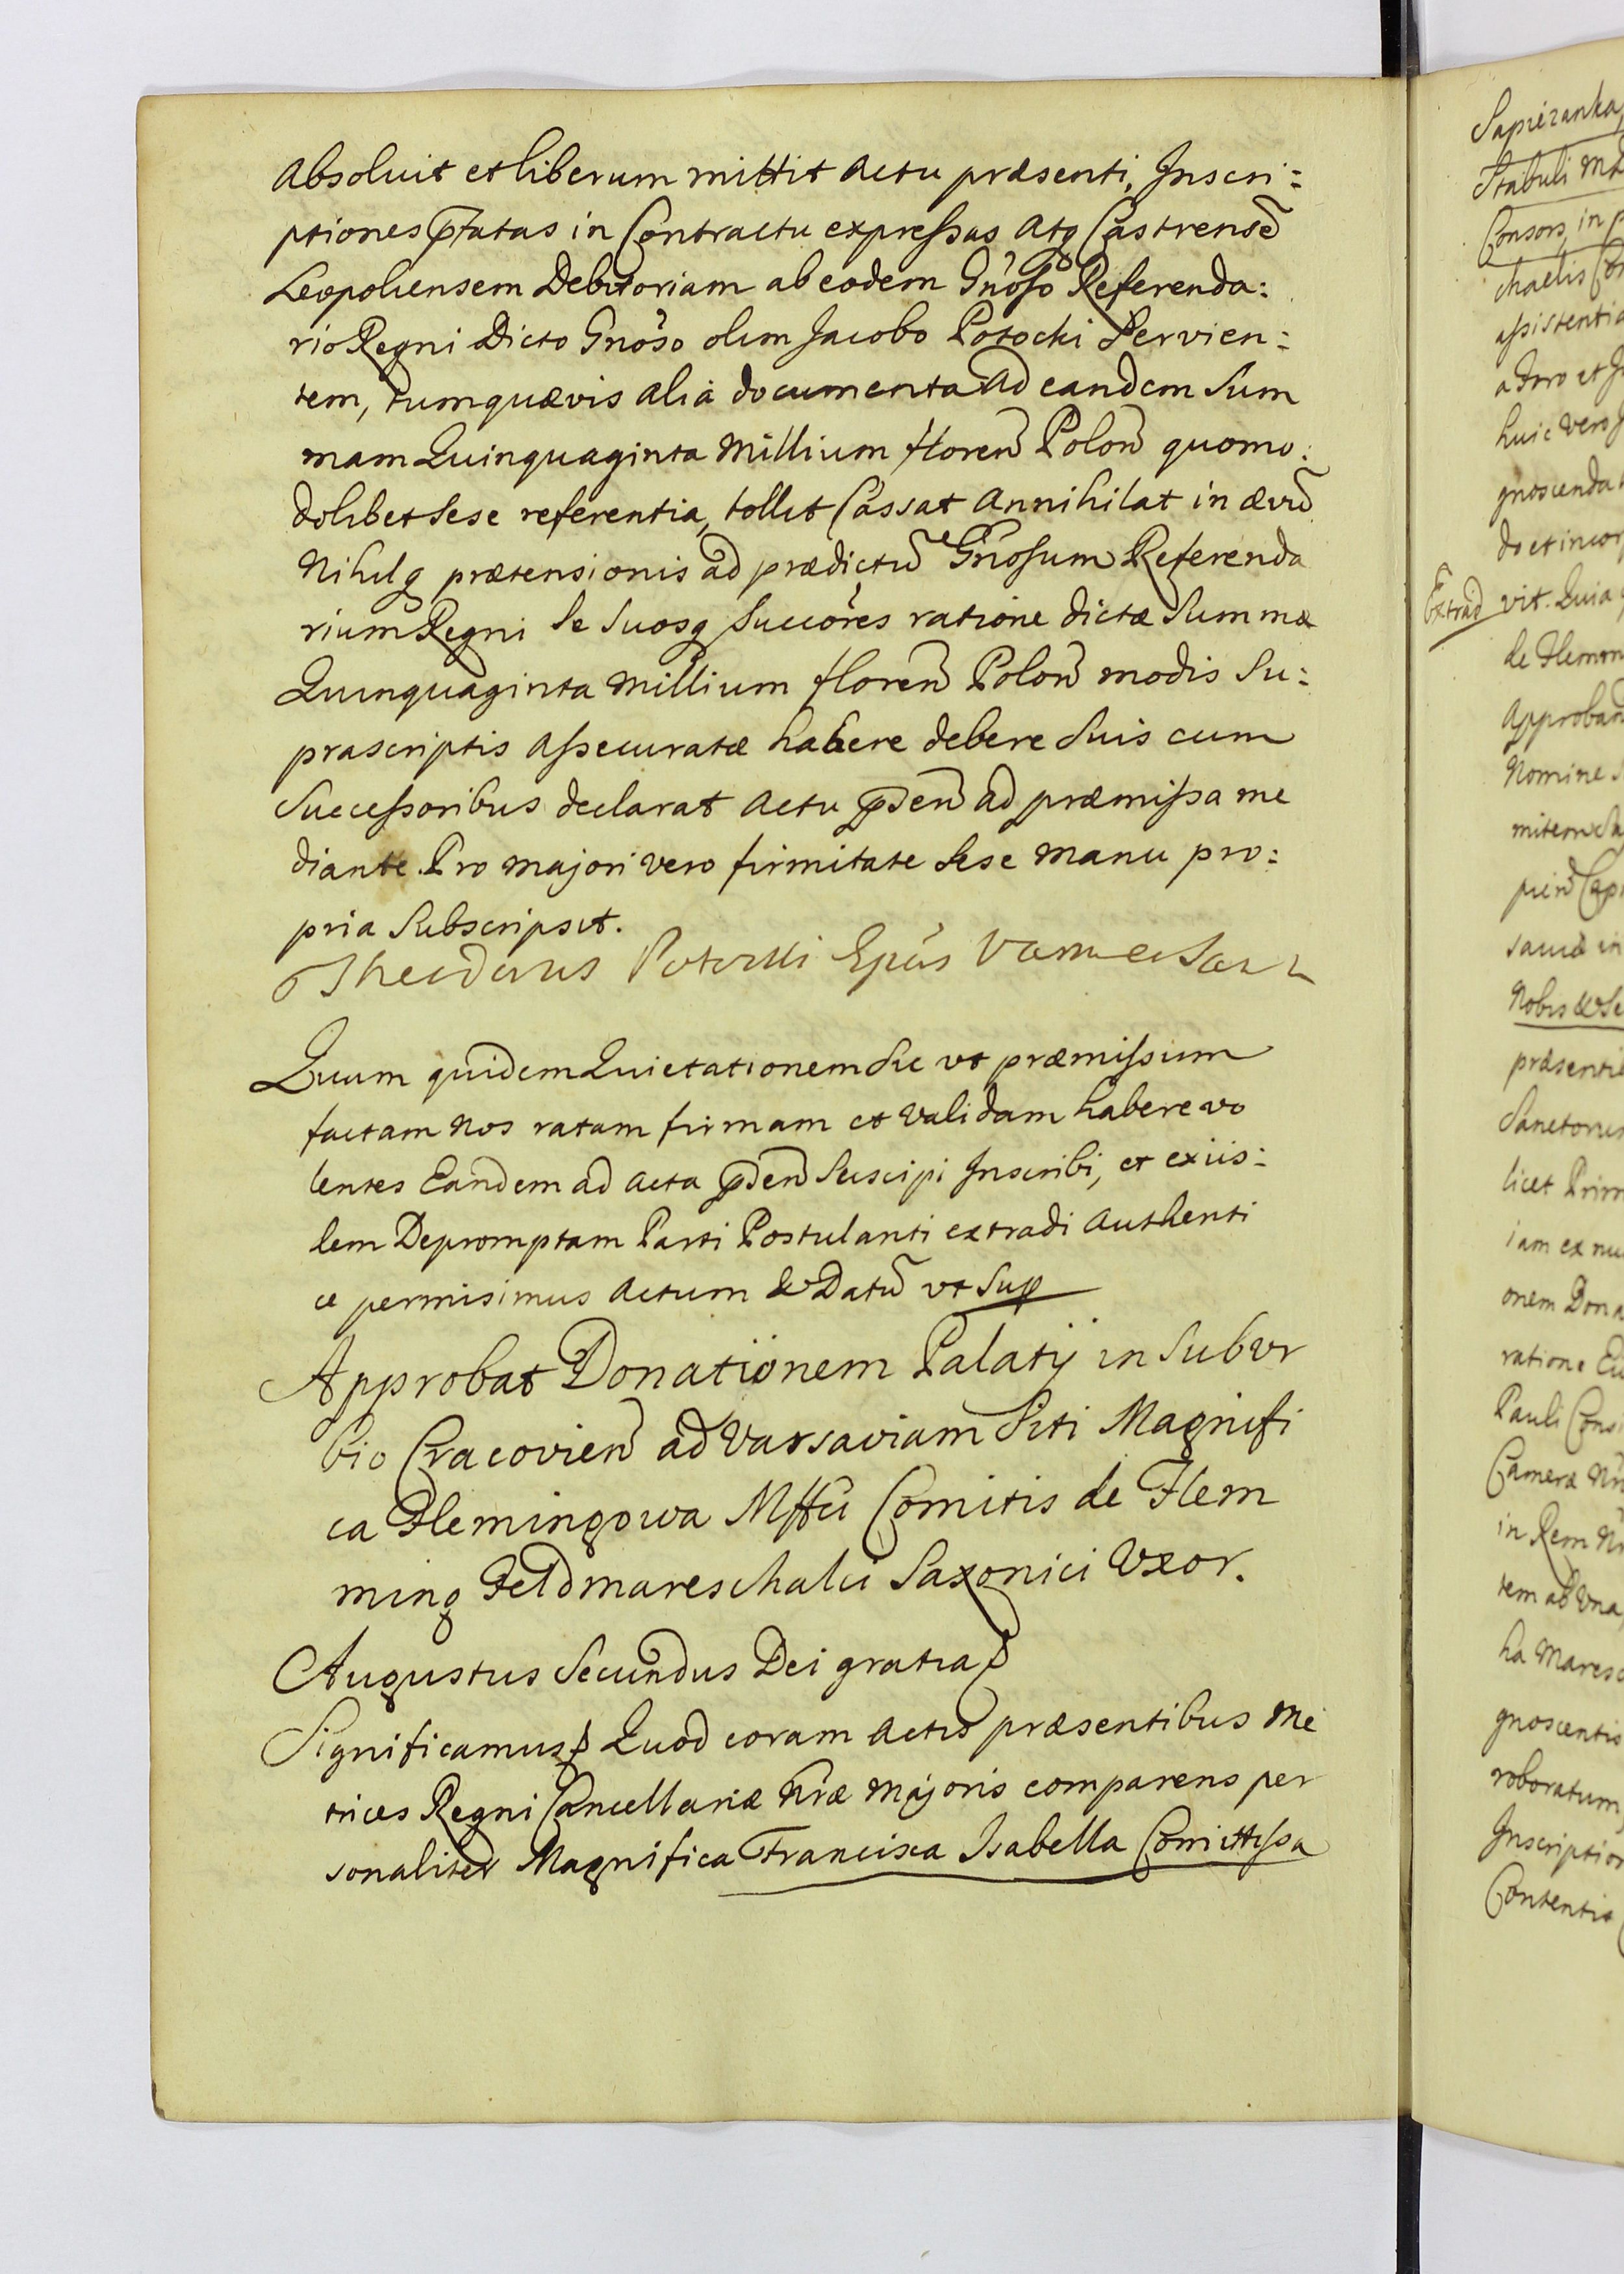 Absoluit et liberum mittit Actu præsenti, Inscri:
ptiones p̃fatas in Contractu expressas Atq Castrensẽ
Leopoliensem Debitoriam ab eodem Gnoso Referenda:
rio Regni Dicto Gnoso olim Jacobo Potocki Servien:
tem, tum quævis Alia documenta Ad eandem Sum
mam Quinquaginta Millium floren̄ Polon̄ quomo:
dolibet Sese referentia, tollit Cassat Annihilat in ævũ
Nihilq prætensionis ad prædictũ Gnosum Referenda
rium Regni Se Suosq Succōres ratione dictæ Summæ
Quinquaginta Millium floren̄ Polon̄ modis Su:
prascriptis Assecuratæ habere debere Suis cum
Successoribus declarat Actu p̃sen̄ ad præmissa me
diante. Pro majori vero firmitate Sese Manu pro:
pria Subscripsit.
Theodorus Potocki Epũs
Quum quidem Quietationem Sic vt præmissum
factam Nos ratam firmam et validam habere vo
lentes Eandem ad Acta p̃sen̄ Suscipi Inscribi, et exiis:
dem Depromptam Parti Postulanti extradi Authenti
ce permisimus Actum & Datũ vt Sup
Approbat Donationem Palatij in Subur
bio Cracovien̄ ad Varsaviam Siti Magnifi
ca Flemingowa Mffci Comitis de Flem
ming Feldmareschalci Saxonici Vxor.
Augustus Secundus Dei gratia
Significamus Quod coram Actis præsentibus Me
trices Regni Cancellariæ Nræ Majoris comparens per
sonaliter Magnifica Francisca Isabella Comittissa
Sapiezanka
Stabuli
Consors, in
chaelis
assistentia
huic vero
gnoscenda
do et incor
Extrad vit. Quia
de Flemm
Approban
Nomine
Nobis
præsenti
Sanctorum
licet Prim
iam ex nu
onem Dona
ratione
Pauli Cons
Cameræ
in Rem
tem ab Una
ha Maresc
gnoscentis
roboratum
Inscription
Contentis